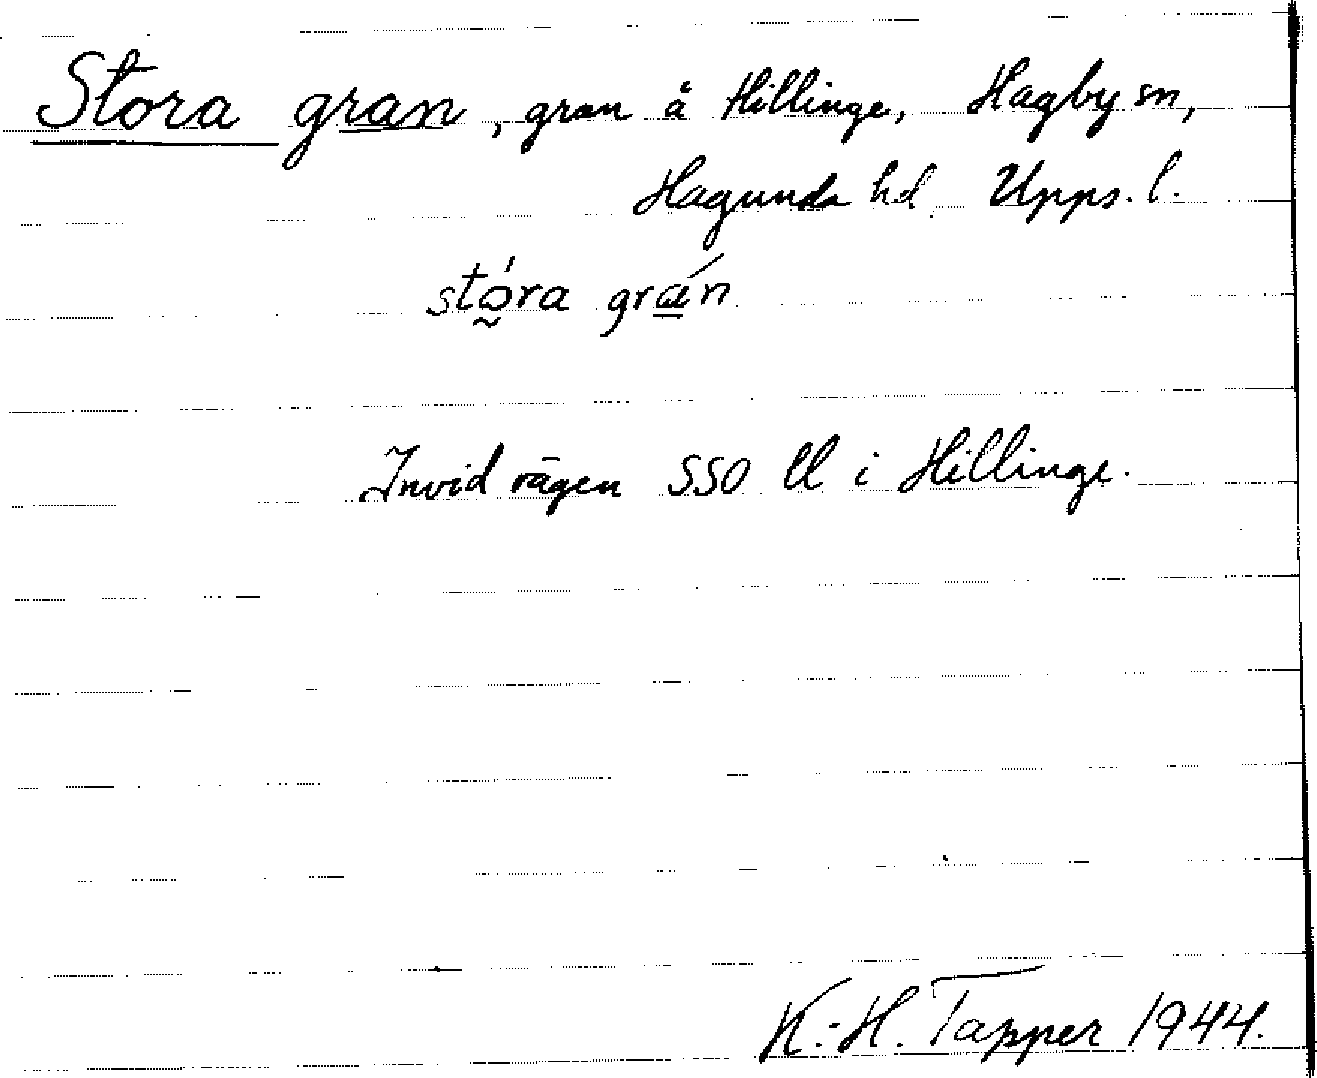 Stora gran, gran å Hillinge, Hagby sn,
Hagunda hd, Upps. l.
stó̰ra grán
Invid vägen SSO ll i Hillinge.
K.-H. Tapper 1944.